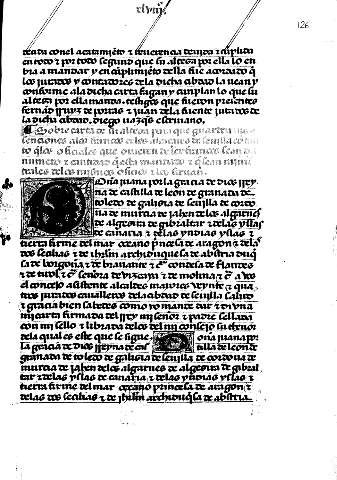 xlviij
126
tenta con el acatamiẽto & rreuerençia deuida & cunplida
en todo & por todo segund que su alteza por ella lo en
bia a mandar y en cunplimiẽto della fue acordado q̃
los jurados y contadores dela dicha çibdad la vean y
conforme ala dicha carta fagan y cunplan lo que su
alteza por ella manda. testigos que fueron presentes
la dicha çibdad. diego vazq̃s escriuano.
Sobre carta de su alteza para que guarden
Doña juana por la graçia de dios rrey
na de castilla de leon de granada de
toledo de galisia de seuilla de cordo
ua de murçia de jahen delos algarues
de algesira de gibraltar & delas yslas
de canaria & delas yndias yslas &
tierra firme del mar oçeano prinçesa de aragon & delas
dos seçilias & de jhrlm archiduquesa de abstria duq̃
sa de borgoña & de brauante & c̃ condesa de flandes
& de tirol & c̃ señora de vizcaya & de molina & c̃ a vos
el conçejo asistente alcaldes mayores veynte & qua
tros jurados caualleros dela çibdad de seuilla salud
& graçia bien sabedes como yo mande dar & di vna
mi carta firmada del rrey mi señor & padre sellada
con mi sello & librada delos del mi consejo su thenor
dela qual es este que se sigue. Doña juana por
la graçia de dios rreyna de castilla de leon de
granada de toledo de galisia de seuilla de cordoua de
murçia de jahen delos algarues de algesira de gibral
tar & delas yslas de canaria & delas yndias yslas &
tierra firme del mar oçeano prinçesa de aragon &
delas dos seçilias & de jhrlm archiduquesa de abstria.